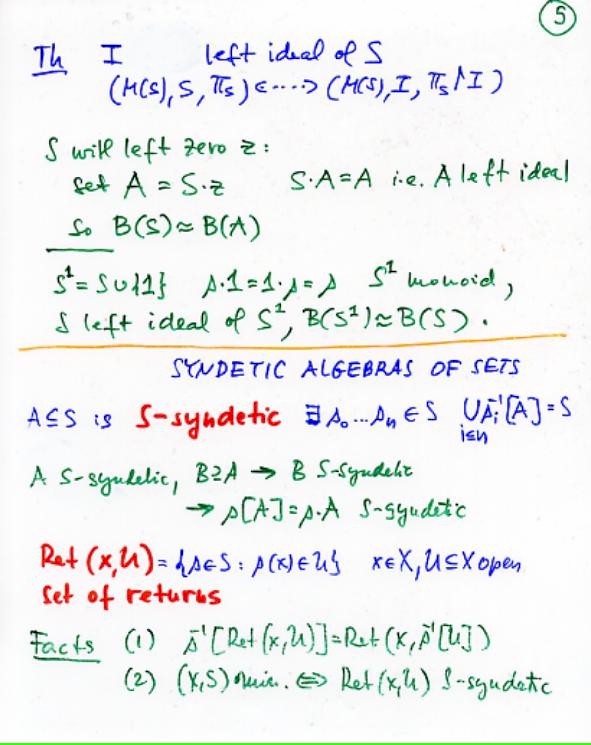 5
Th I left ideal of S
(M(S), S, π_S) <----> (M(S), I, π_S↾I)
S will left zero z:
set A = S·z S·A=A i.e. A left ideal
So B(S)≈B(A)
S¹= S∪{1} s·1=1·s=s S¹ monoid,
S left ideal of S¹, B(S¹)≈B(S).
SYNDETIC ALGEBRAS OF SETS
A⊆S is S-syndetic ∃ s₀...sₙ∈S ⋃ sᵢ⁻¹[A]=S
i≤n
A S-syndetic, B⊇A → B S-syndetic
→ s[A]=s·A S-syndetic
Ret (x,U)={s∈S : s(x)∈U} x∈X, U⊆X open
set of returns
Facts (1) s⁻¹[Ret(x,U)]=Ret(x,s⁻¹[U])
(2) (X,S) min. ⇔ Ret(x,U) S-syndetic